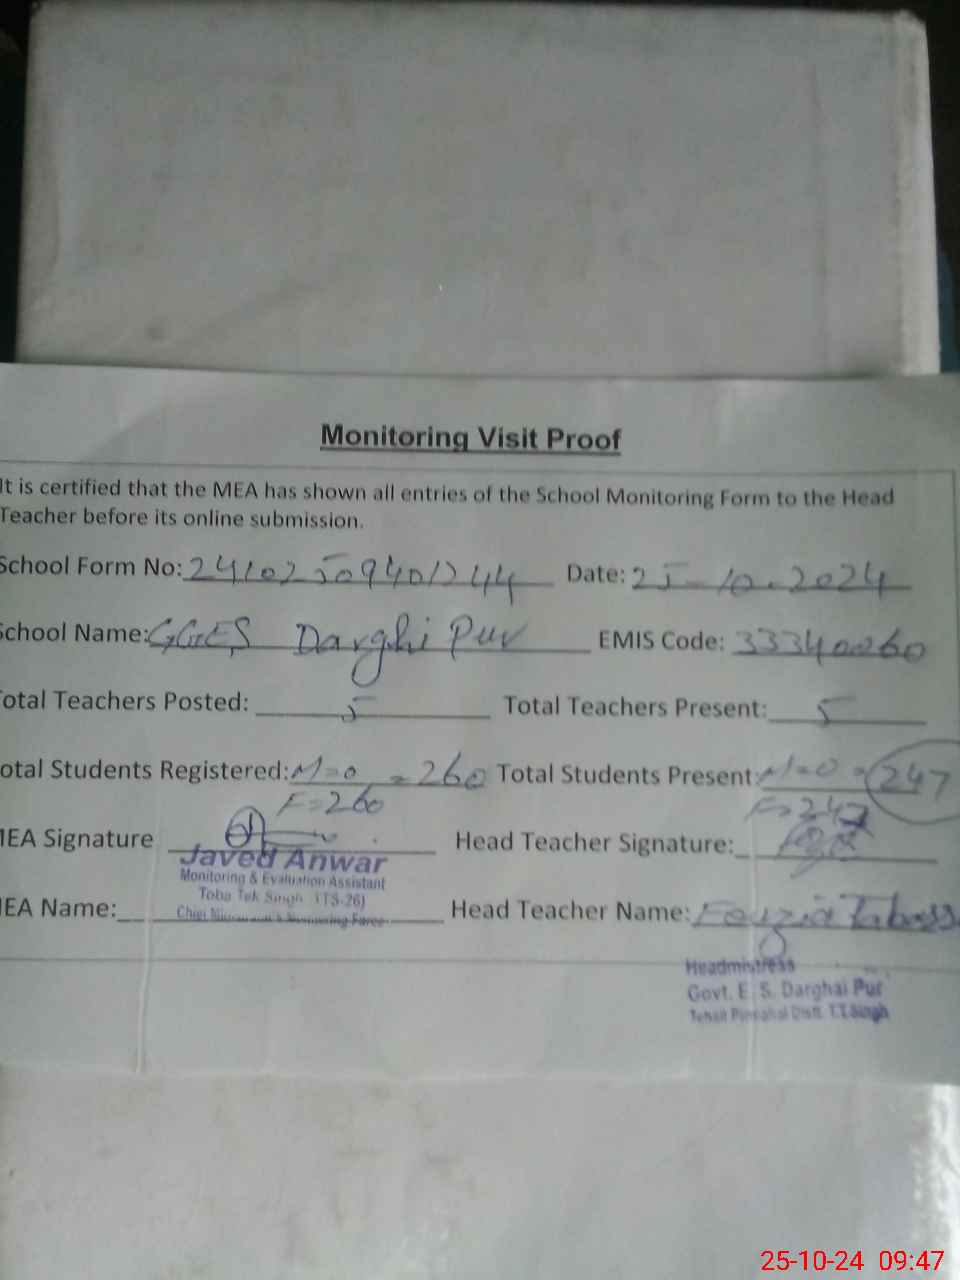 Monitoring Visit Proof
It is certified that the MEA has shown all entries of the School Monitoring Form to the Head
Teacher before its online submission.
School Form No: 24102509401244 Date: 25-10.2024
School Name: GGES Darghi Pur EMIS Code: 33340060
otal Teachers Posted: 5 Total Teachers Present: 5
otal Students Registered: M=0 = 260 Total Students Present: M=0 = 247
F=260 F=247
MEA Signature Head Teacher Signature:
Javed Anwar
Monitoring & Evaluation Assistant
Toba Tek Singh (TS-26)
MEA Name: Chief Minister's Monitoring Force Head Teacher Name: Fouzia Tabass
Headmistress
Govt. E. S. Darghai Pur
Tehsil Pirmahal Distt. T.T.Singh
25-10-24 09:47